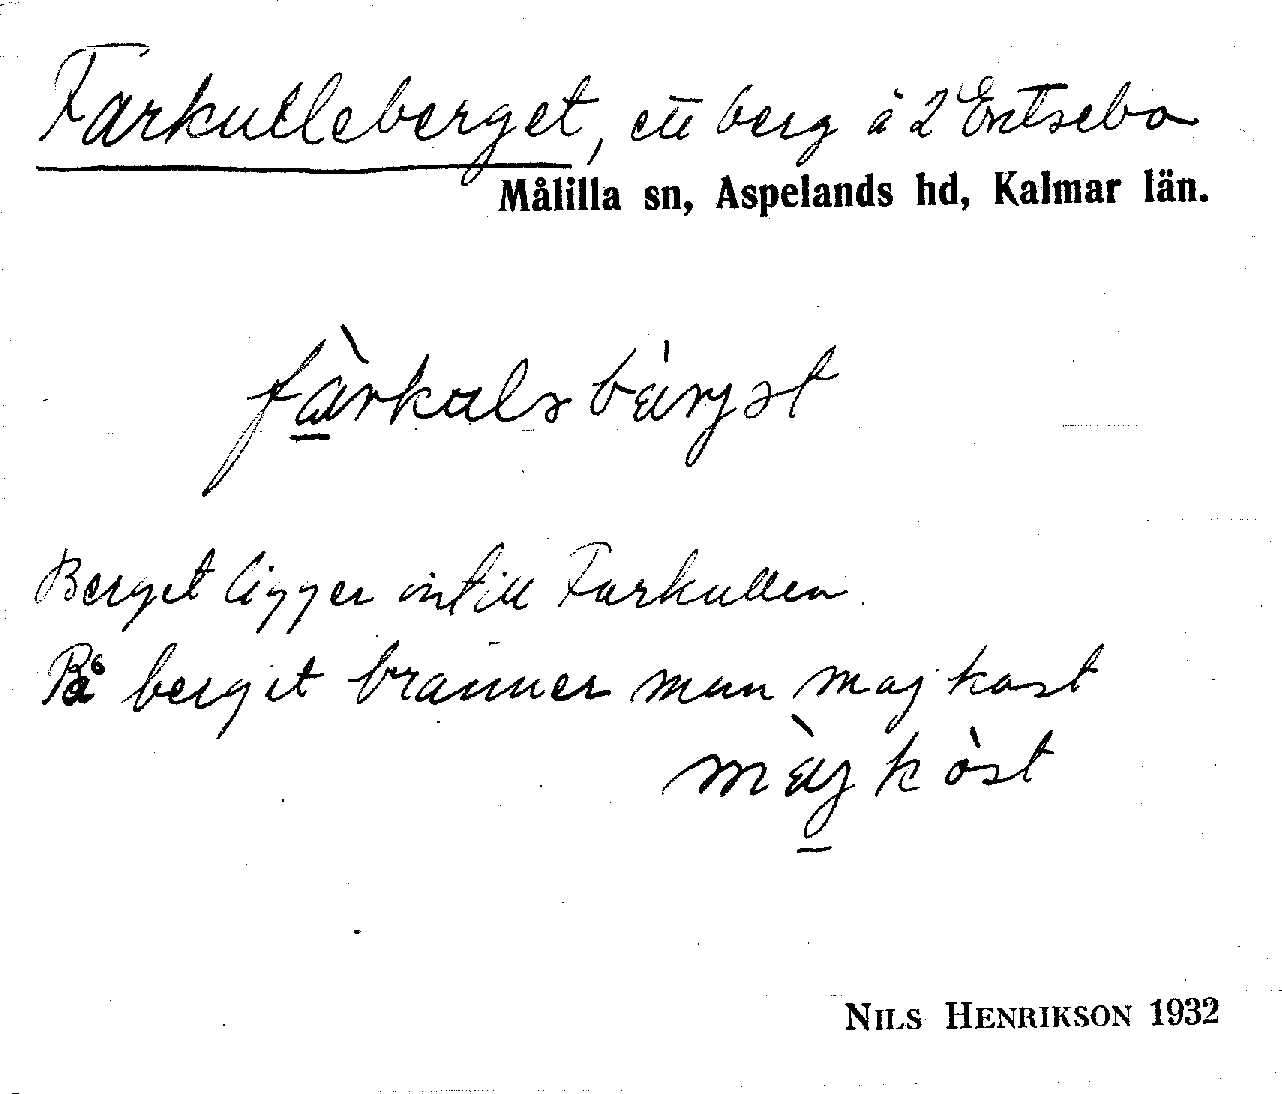 Farkulleberget, ett berg å 2 Entsebo
Målilla sn, Aspelands hd, Kalmar län.
fàrkuləbàrjət
Berget ligger intill Farkullen.
På berget bränner man majkast
màjkàst
NILS HENRIKSON 1932